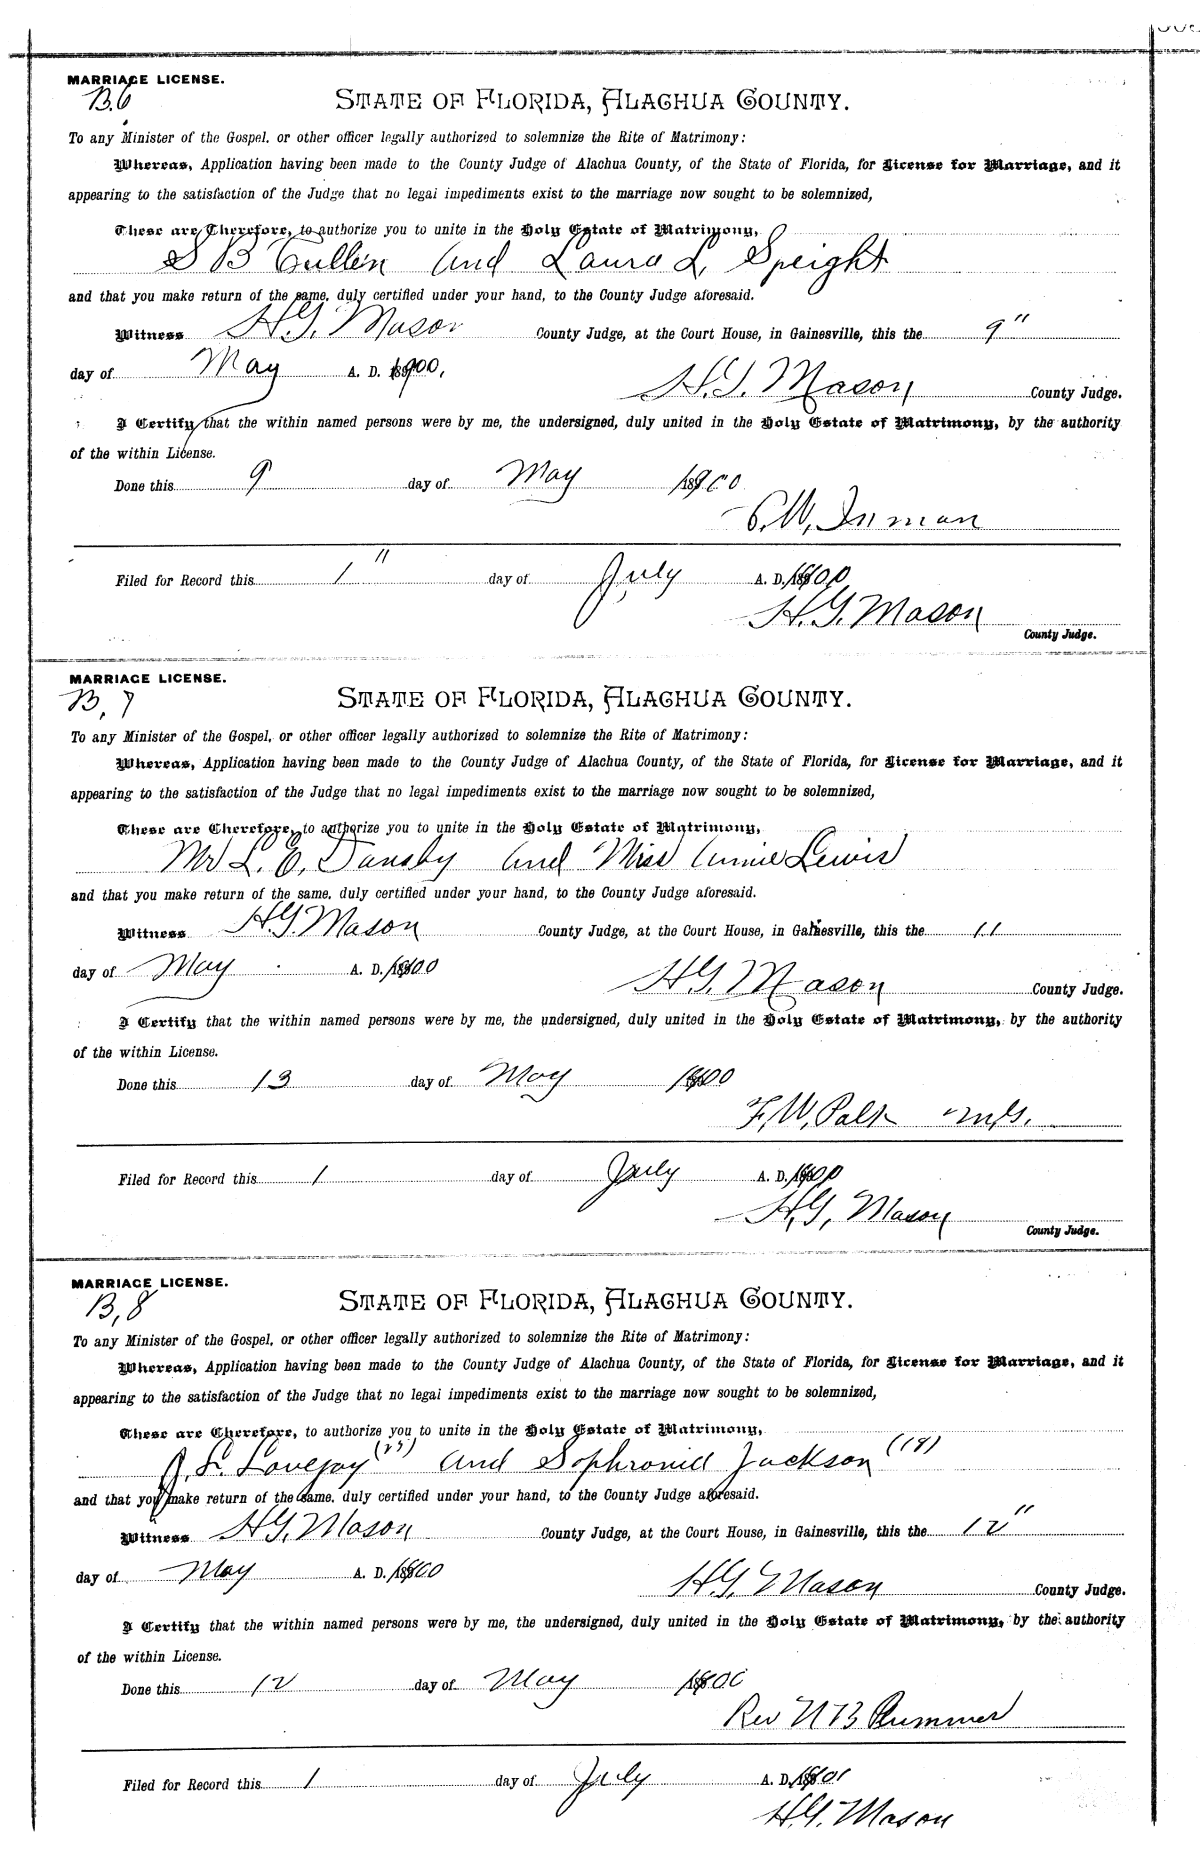 MARRIAGE LICENSE.
B.6
STATE OF FLORIDA, ALACHUA COUNTY.
To any Minister of the Gospel, or other officer legally authorized to solemnize the Rite of Matrimony:
Whereas, Application having been made to the County Judge of Alachua County, of the State of Florida, for License for Marriage, and it
appearing to the satisfaction of the Judge that no legal impediments exist to the marriage now sought to be solemnized,
These are Therefore, to authorize you to unite in the Holy Estate of Matrimony,
S B Cullen and Laura L. Speight
and that you make return of the same, duly certified under your hand, to the County Judge aforesaid.
Witness H.G. Mason County Judge, at the Court House, in Gainesville, this the 9"
day of May A. D. 1900,
H.G. Mason County Judge.
I Certify that the within named persons were by me, the undersigned, duly united in the Holy Estate of Matrimony, by the authority
of the within License.
Done this 9 day of May 1900
W. Inman
Filed for Record this 1" day of July A. D. 1900
H.G. Mason
County Judge.
MARRIAGE LICENSE.
B, 7
STATE OF FLORIDA, ALACHUA COUNTY.
To any Minister of the Gospel, or other officer legally authorized to solemnize the Rite of Matrimony:
Whereas, Application having been made to the County Judge of Alachua County, of the State of Florida, for License for Marriage, and it
appearing to the satisfaction of the Judge that no legal impediments exist to the marriage now sought to be solemnized,
These are Therefore, to authorize you to unite in the Holy Estate of Matrimony,
Mr L. E. Dansby and Miss Annie Lewis
and that you make return of the same, duly certified under your hand, to the County Judge aforesaid.
Witness H.G. Mason County Judge, at the Court House, in Gainesville, this the 11
day of May A. D. 1900
H.G. Mason County Judge.
I Certify that the within named persons were by me, the undersigned, duly united in the Holy Estate of Matrimony, by the authority
of the within License.
Done this 13 day of May 1900
F. W. M.G.
Filed for Record this 1 day of July A. D. 1900
H.G, Mason
County Judge.
MARRIAGE LICENSE.
B, 8
STATE OF FLORIDA, ALACHUA COUNTY.
To any Minister of the Gospel, or other officer legally authorized to solemnize the Rite of Matrimony:
Whereas, Application having been made to the County Judge of Alachua County, of the State of Florida, for License for Marriage, and it
appearing to the satisfaction of the Judge that no legal impediments exist to the marriage now sought to be solemnized,
These are Therefore, to authorize you to unite in the Holy Estate of Matrimony,
J. L. Lovejoy and Sophronia Jackson
and that you make return of the same, duly certified under your hand, to the County Judge aforesaid.
Witness H.G. Mason County Judge, at the Court House, in Gainesville, this the 12"
day of May A. D. 1900
H.G. Mason County Judge.
I Certify that the within named persons were by me, the undersigned, duly united in the Holy Estate of Matrimony, by the authority
of the within License.
Done this 12 day of May 1900
Rev N B Plummer
Filed for Record this 1 day of July A. D. 1901
H.G. Mason